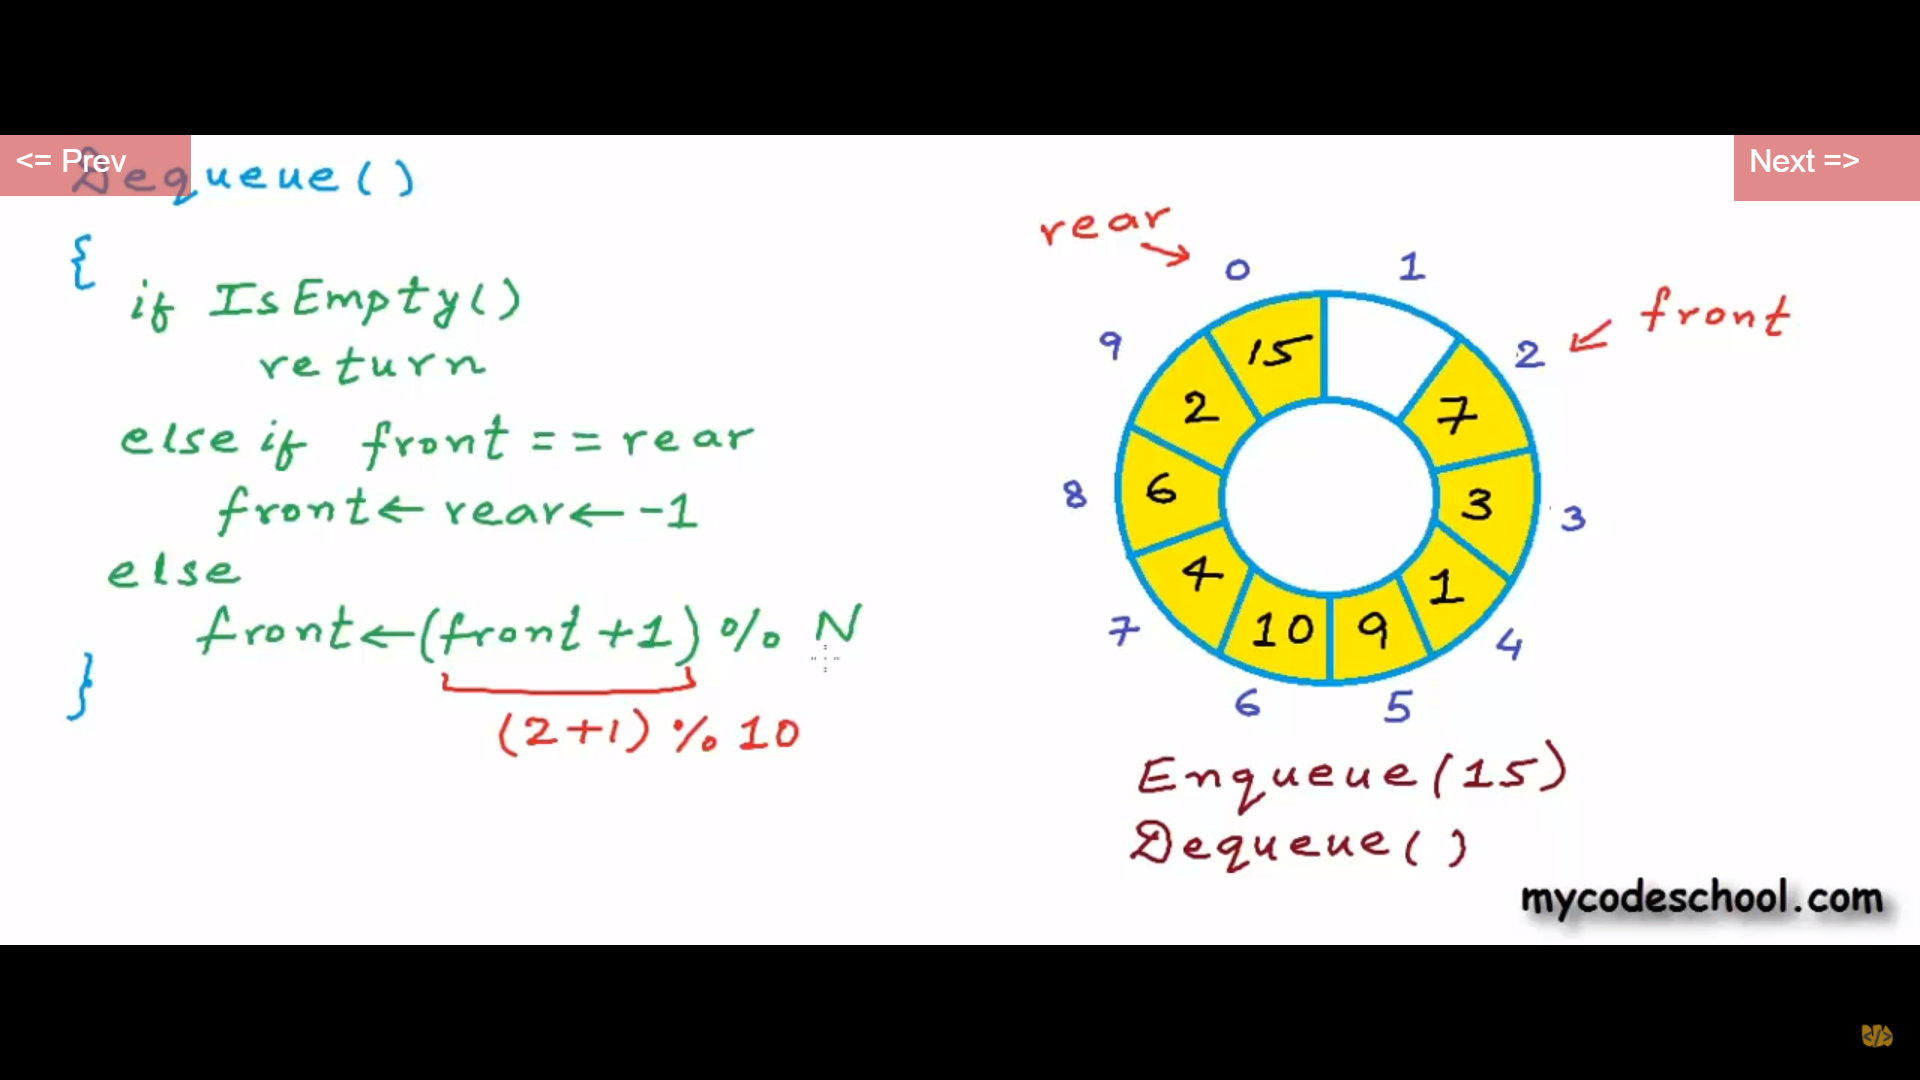 <= Prev
Next =>
Dequeue()
{
if IsEmpty()
return
else if front == rear
front ← rear ← -1
else
front ← (front+1) % N
}
(2+1) % 10
rear
front
0
1
2
3
4
5
6
7
8
9
15
7
3
1
9
10
4
6
2
Enqueue(15)
Dequeue()
mycodeschool.com